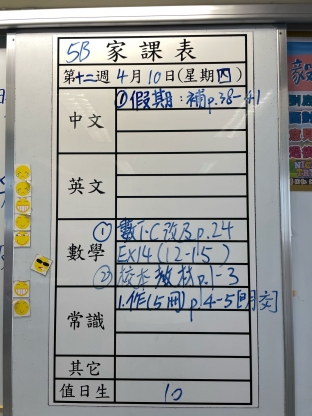 5B 家課表
第十二週 4月10日(星期四)
中文 ①假期:補p.38-41
英文
數學 ① 數T.C改及p.24
Ex14(12-15)
② 校本教材p.1-3
常識 1.作(5冊)p.4-5[明交]
其它
值日生 10